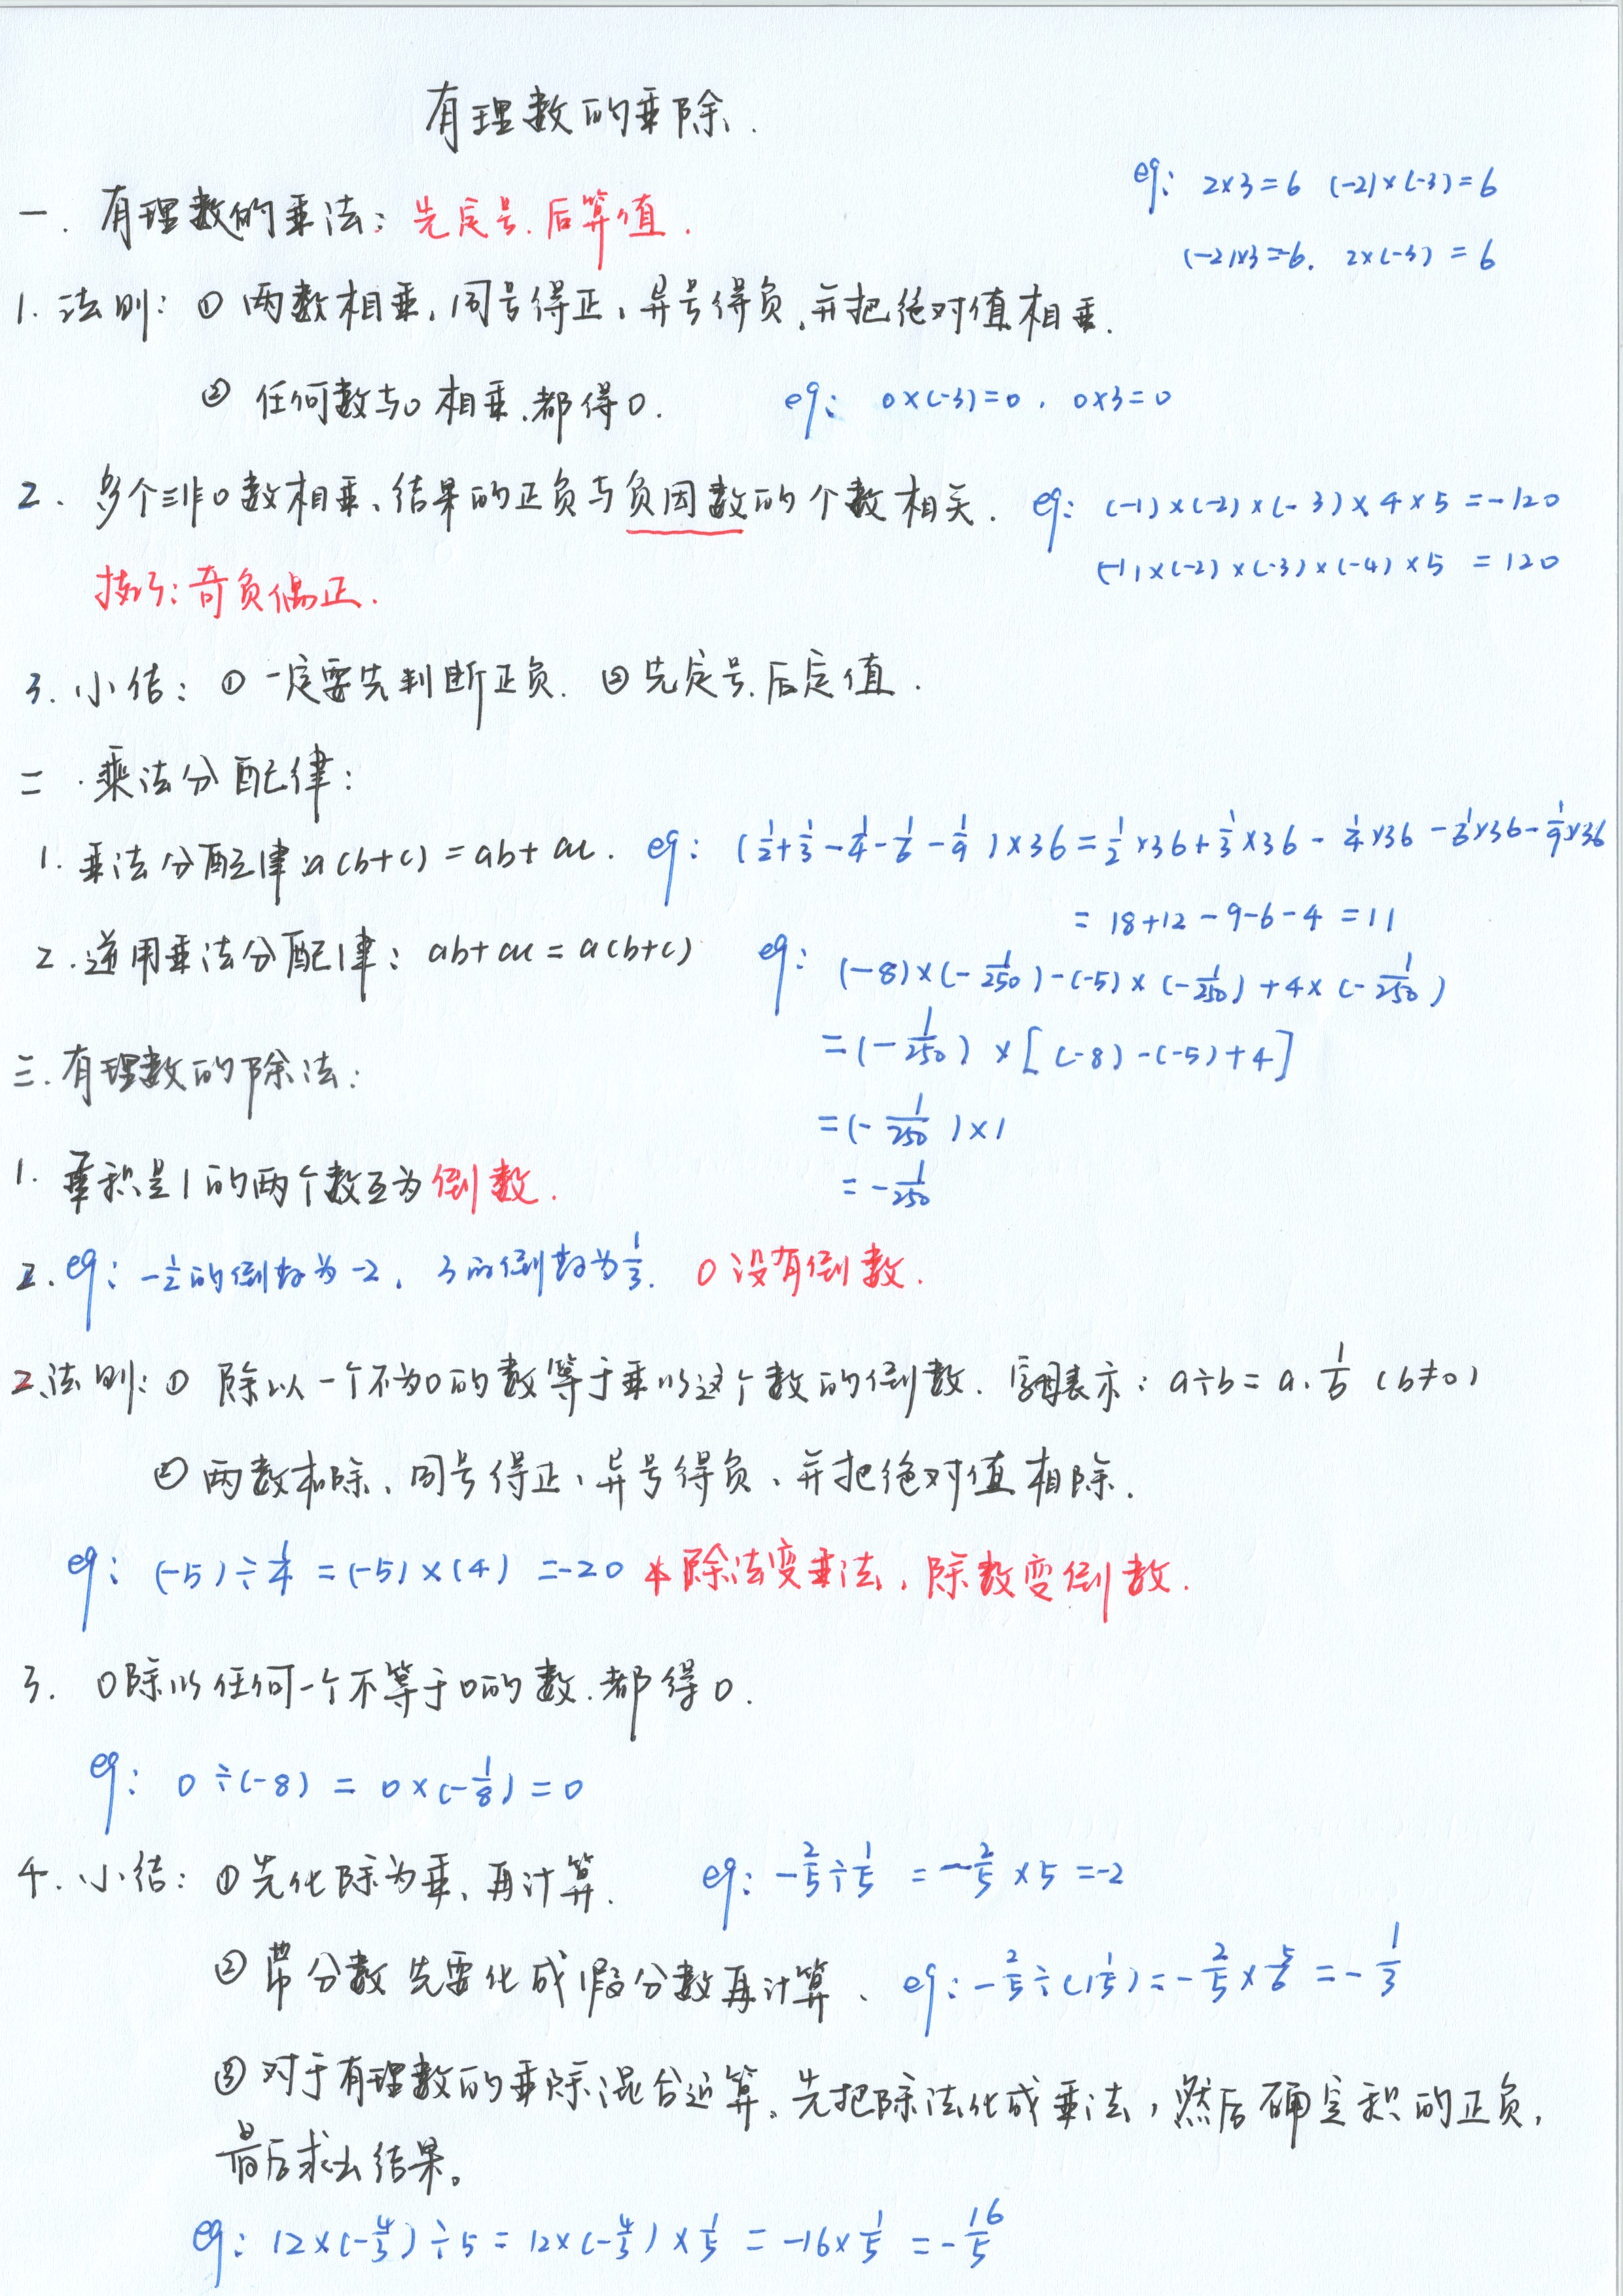 有理数的乘除.
eg: 2×3=6 (-2)×(-3)=6
一. 有理数的乘法: 先定号, 后算值.
(-2)×3=-6, 2×(-3)=6
1. 法则: ① 两数相乘, 同号得正, 异号得负, 并把绝对值相乘.
② 任何数与0相乘, 都得0. eg: 0×(-3)=0, 0×3=0
2. 多个非0数相乘, 结果的正负与负因数的个数相关. eg: (-1)×(-2)×(-3)×4×5=-120
(-1)×(-2)×(-3)×(-4)×5=120
技巧: 奇负偶正.
3. 小结: ① 一定要先判断正负. ② 先定号, 后定值.
二. 乘法分配律:
1. 乘法分配律: a(b+c)=ab+ac. eg: (1/2+1/3-1/4-1/6-1/9)×36=1/2×36+1/3×36-1/4×36-1/6×36-1/9×36
=18+12-9-6-4=11
2. 逆用乘法分配律: ab+ac=a(b+c) eg: (-8)×(-1/250)-(-5)×(-1/250)+4×(-1/250)
=(-1/250)×[(-8)-(-5)+4]
三. 有理数的除法:
=(-1/250)×1
1. 乘积是1的两个数互为倒数.
=-1/250
2. eg: -1/2的倒数为-2, 3的倒数为1/3. 0没有倒数.
2. 法则: ① 除以一个不为0的数等于乘以这个数的倒数. 字母表示: a÷b=a·1/b (b≠0)
② 两数相除, 同号得正, 异号得负, 并把绝对值相除.
eg: (-5)÷1/4=(-5)×(4)=-20 * 除法变乘法, 除数变倒数.
3. 0除以任何一个不等于0的数, 都得0.
eg: 0÷(-8)=0×(-1/8)=0
4. 小结: ① 先化除为乘, 再计算. eg: -2/5÷1/5=-2/5×5=-2
② 带分数先要化成假分数再计算, eg: -2/5÷(1 1/5)=-2/5×5/6=-1/3
③ 对于有理数的乘除混合运算, 先把除法化成乘法, 然后确定积的正负,
最后求出结果。
eg: 12×(-4/3)÷5=12×(-4/3)×1/5=-16×1/5=-16/5